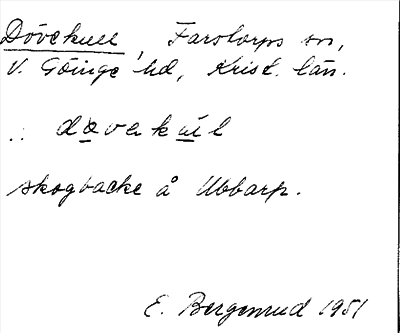 Dövekull, Farstorps sn,
V. Göinge hd, Krist. län.
.. døvekul
skogbacke å Ubbarp.
E. Bergenrud 1951